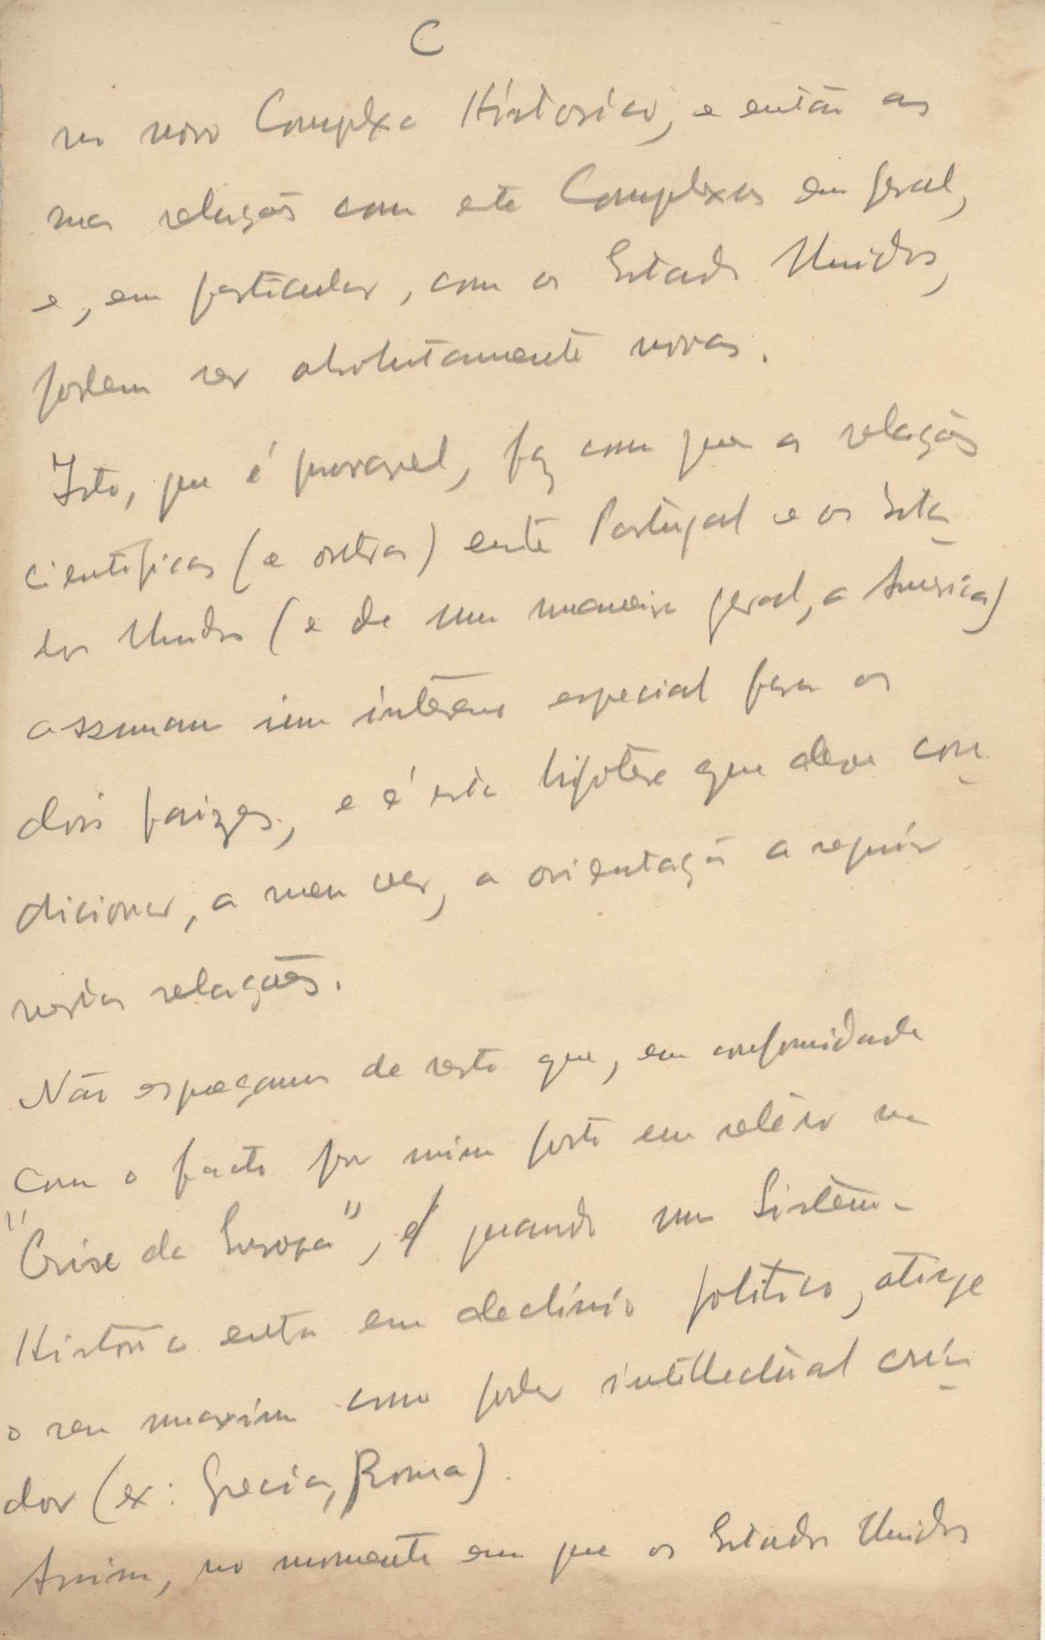 C
no novo Complexo Historico, e então as
suas relações com este Complexos em geral,
e, em particular, com os Estados Unidos,
podem ser absolutamente novas.
Isto, que é provavel, faz com que as relações
cientificas (e outras) entre Portugal e os Esta-
dos Unidos (e de uma maneira geral, a America)
assumam um interesse especial para os
dois paizes, e é esta hipotese que deve con-
dicionar, a meu ver, a orientação a seguir
nestas relações.
Não esqueçamos de resto que, em conformidade
com o facto por mim posto em relêvo na
"Crise da Europa", é quando um Sistema
Historico entra em declínio politico, atinge
o seu maximo como poder intellectual cria-
dor (ex: Grecia, Roma).
Assim, no momento em que os Estados Unidos